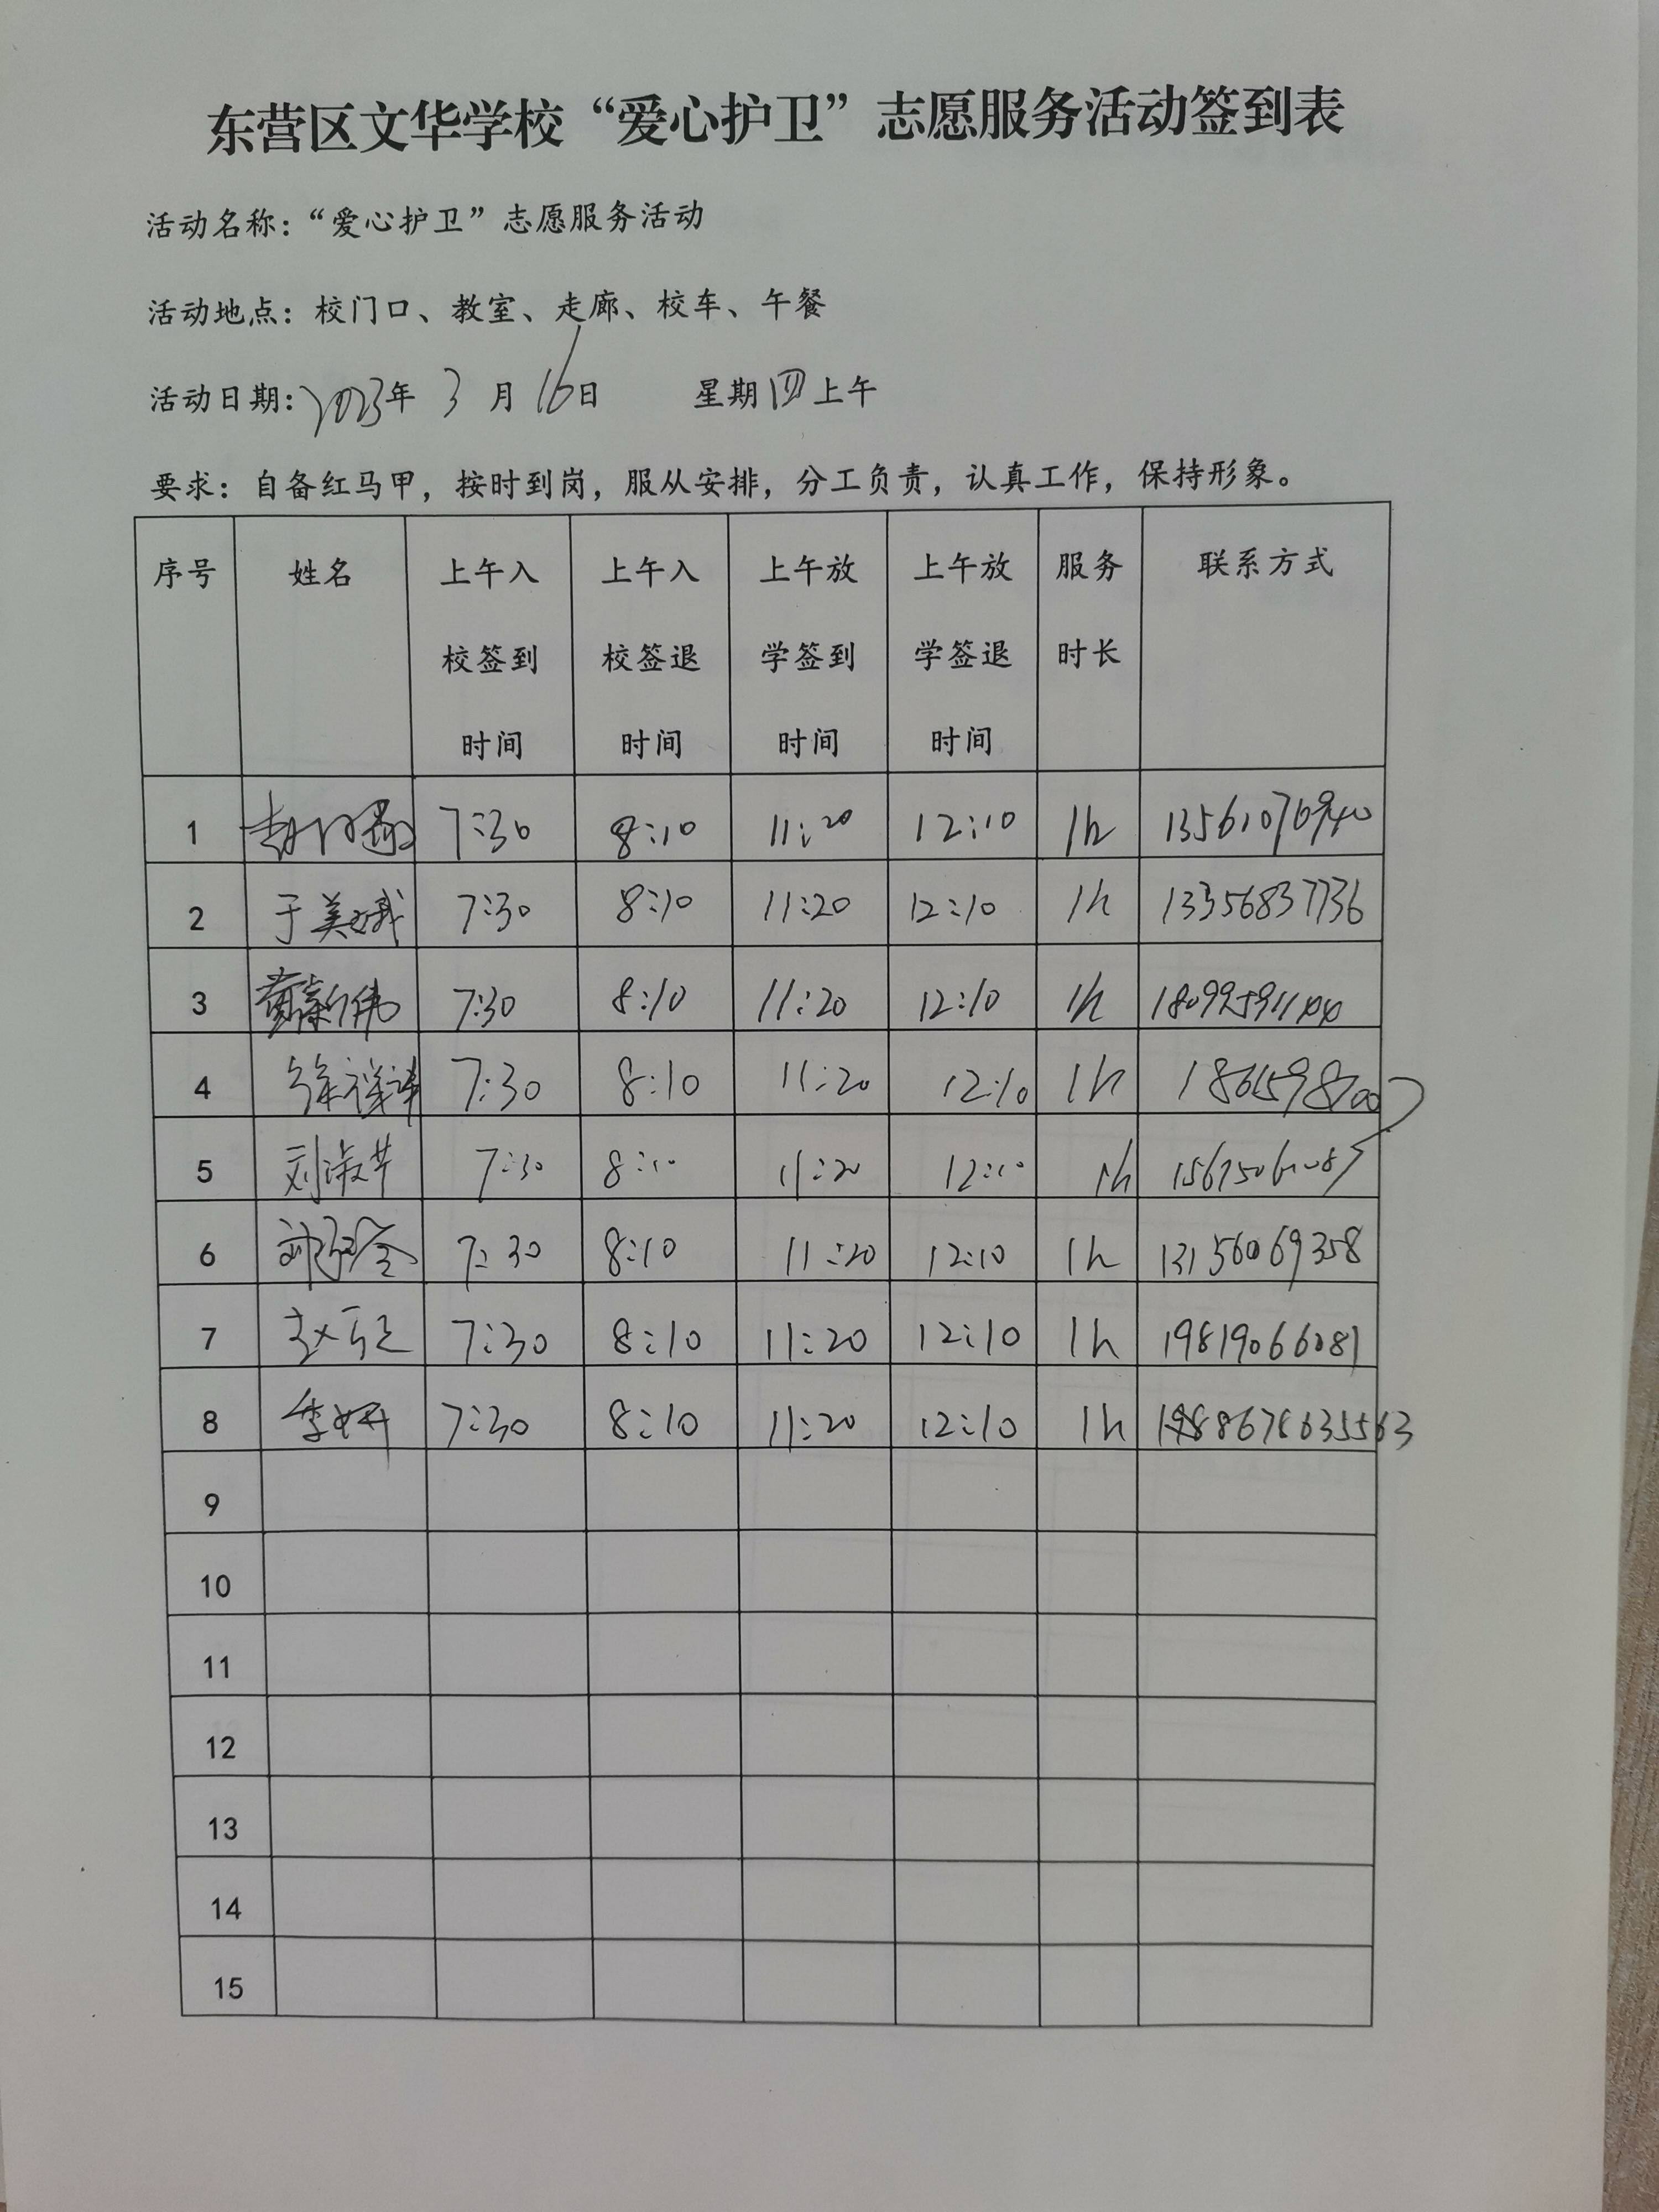 东营区文华学校“爱心护卫”志愿服务活动签到表
活动名称：“爱心护卫”志愿服务活动
活动地点：校门口、教室、走廊、校车、午餐
活动日期：2023年 3 月 16日 星期四上午
要求：自备红马甲，按时到岗，服从安排，分工负责，认真工作，保持形象。
序号 姓名 上午入校签到时间 上午入校签退时间 上午放学签到时间 上午放学签退时间 服务时长 联系方式
1 7:30 8:10 11:20 12:10 1h 13561076940
2 于美娥 7:30 8:10 11:20 12:10 1h 13356837736
3 黄新伟 7:30 8:10 11:20 12:10 1h
4 徐祥 7:30 8:10 11:20 12:10 1h
5 刘淑芹 7:30 8:10 11:20 12:10 1h
6 7:30 8:10 11:20 12:10 1h 13156069358
7 赵 7:30 8:10 11:20 12:10 1h 19819066081
8 李妍 7:30 8:10 11:20 12:10 1h
9
10
11
12
13
14
15